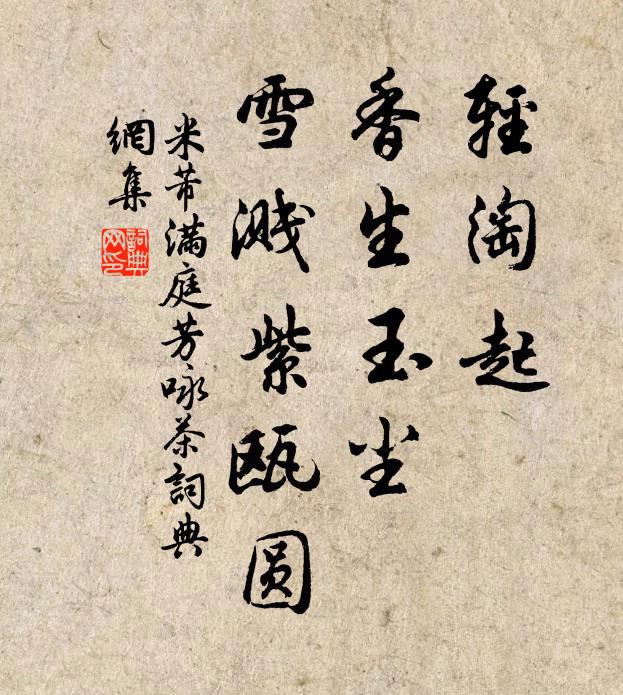 輕淘起
香生玉尘
雪溅紫瓯圆
米芾满庭芳咏茶詞典
網集
詞典网印